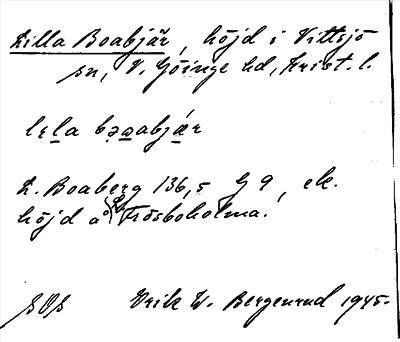 Lilla Boabjär, höjd i Vittsjö
sn, V. Göinge hd, Krist. l.
lɛla bəabjár
L. Boaberg 136,5 G 9, ek.
höjd å Frösboholma.
SOS Erik W. Bergenrud 1945.